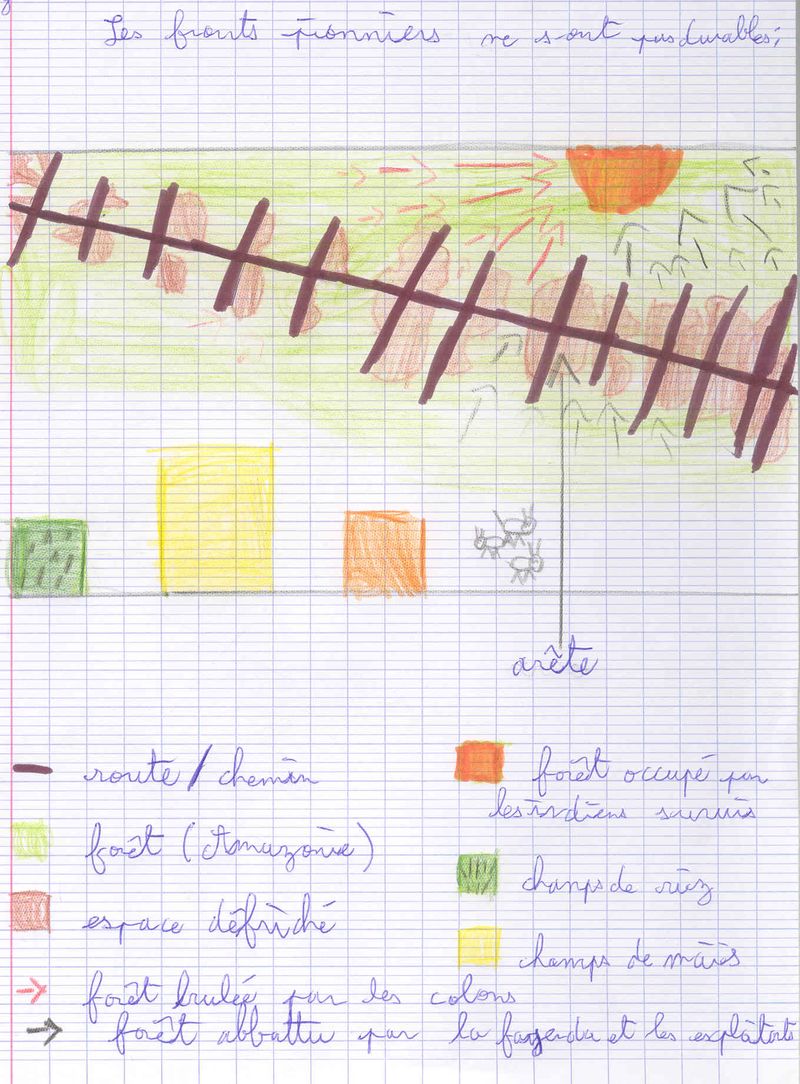 Les fronts pionniers ne sont pas durables;
arête
route / chemin
forêt (Amazonie)
espace défriché
forêt brulée par les colons
forêt abbattu par la fazenda et les exploitants
forêt occupé par
les indiens survis
champs de riez
champs de maïs